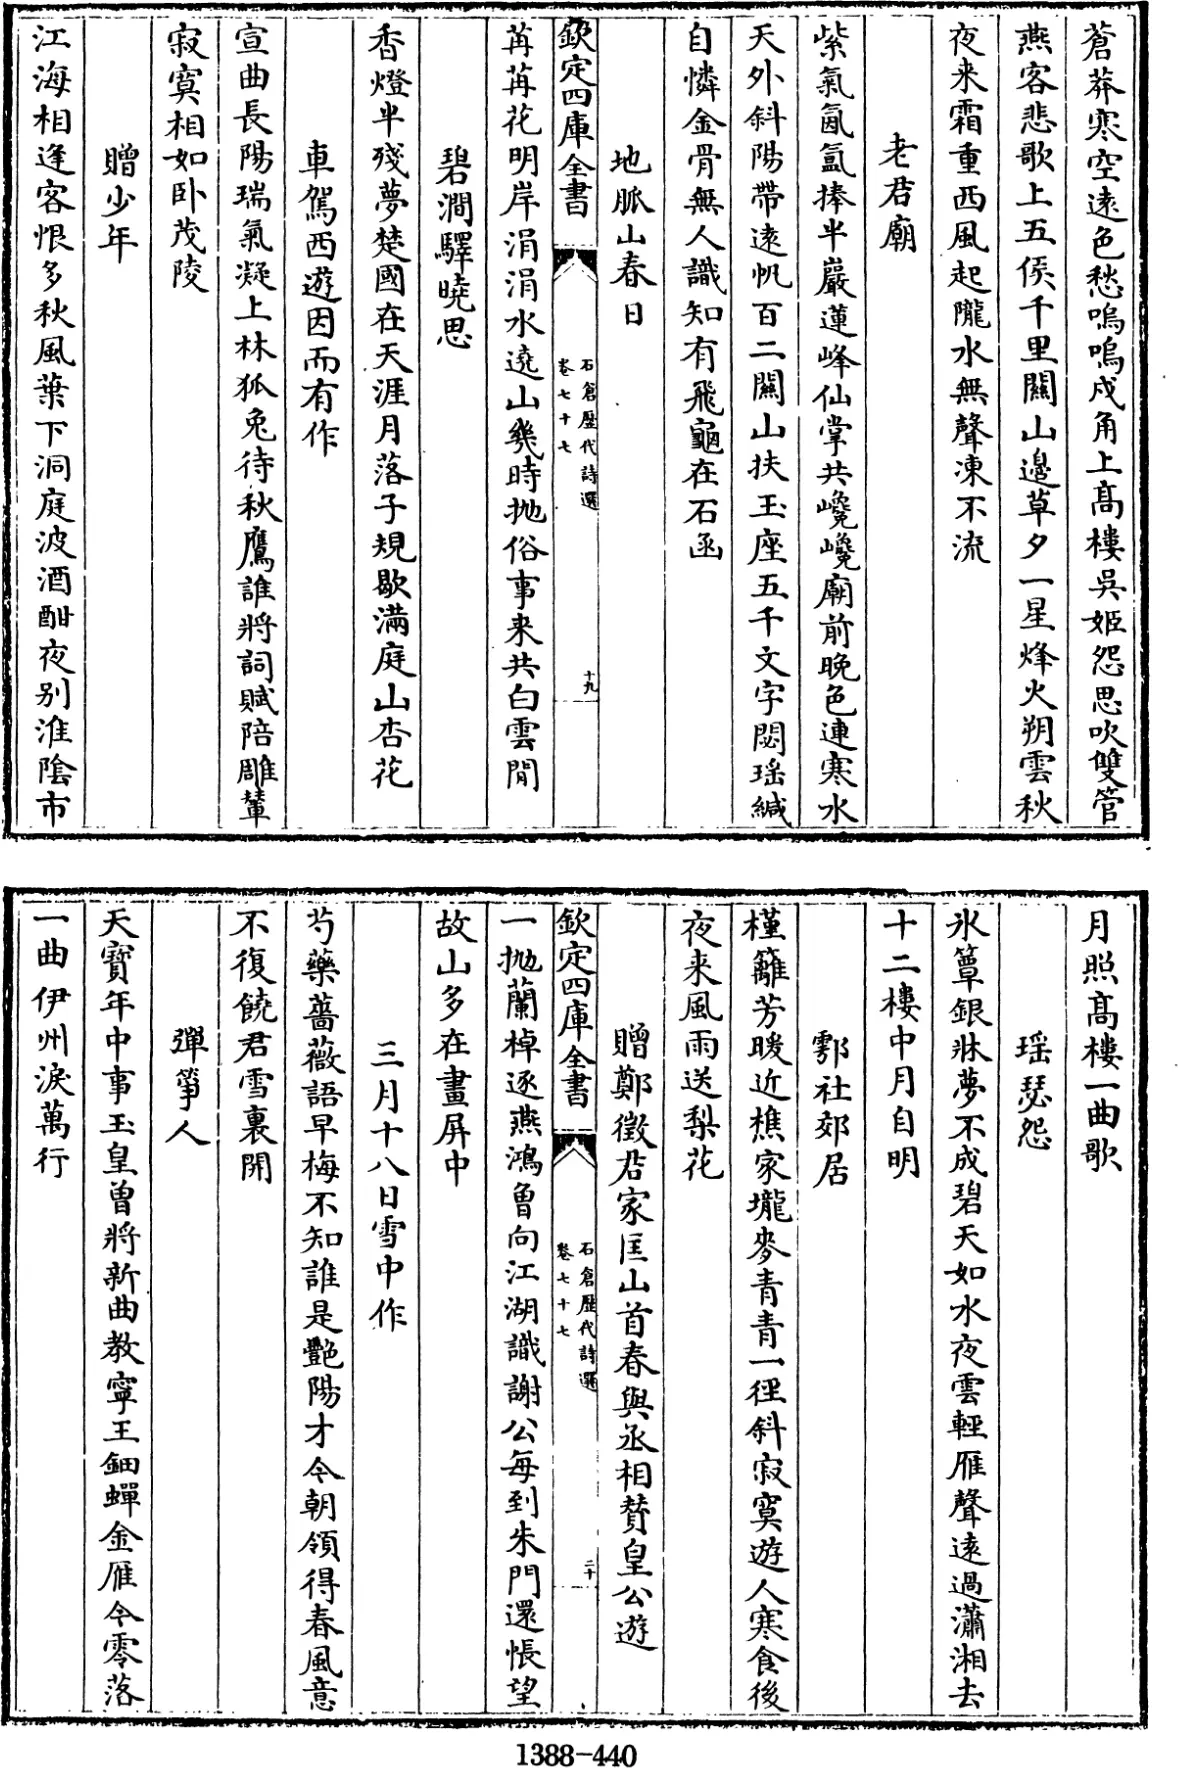 蒼莽寒空遠色愁嗚嗚戍角上髙樓吳姬怨思吹雙管
燕客悲歌上五侯千里闗山邉草夕一星烽火朔雲秋
夜来霜重西風起隴水無聲凍不流
老君廟
紫氣氤氲捧半巖蓮峰仙掌共巉巉廟前晚色連寒水
天外斜陽帶逺帆百二闗山扶玉座五千文字閟瑶緘
自憐金骨無人識知有飛龜在石函
地脈山春日
欽定四庫全書
石倉歷代詩選
卷七十七
十九
苒苒花明岸涓涓水遶山幾時抛俗事来共白雲閒
碧澗驛曉思
香燈半殘夢楚國在天涯月落子規歇滿庭山杏花
車駕西遊因而有作
宣曲長陽瑞氣凝上林狐兎待秋鷹誰將詞賦陪雕輦
寂寞相如卧茂陵
贈少年
江海相逢客恨多秋風葉下洞庭波酒酣夜别淮陰市
月照髙樓一曲歌
瑶瑟怨
氷簟銀牀夢不成碧天如水夜雲輕雁聲逺過瀟湘去
十二樓中月自明
鄠社郊居
槿籬芳暖近樵家壠麥青青一徑斜寂寞遊人寒食後
夜来風雨送梨花
贈鄭徵君家匡山首春與丞相賛皇公遊
欽定四庫全書
石倉歷代詩選
卷七十七
二十
一抛蘭棹逐燕鴻曽向江湖識謝公每到朱門還悵望
故山多在畫屏中
三月十八日雪中作
芍藥薔薇語早梅不知誰是艷陽才今朝領得春風意
不復饒君雪裏開
彈箏人
天寳年中事玉皇曽將新曲教寧王鈿蟬金雁今零落
一曲伊州淚萬行
1388-440